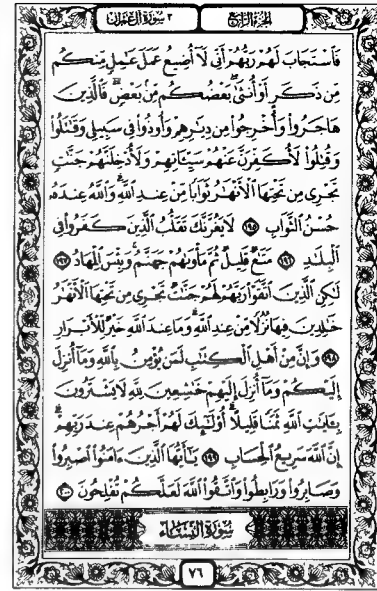 الجزء الرابع
٣ سورة آل عمران
فَٱسْتَجَابَ لَهُمْ رَبُّهُمْ أَنِّى لَآ أُضِيعُ عَمَلَ عَٰمِلٍ مِّنكُم
مِّن ذَكَرٍ أَوْ أُنثَىٰ ۖ بَعْضُكُم مِّنۢ بَعْضٍ ۖ فَٱلَّذِينَ
هَاجَرُوا۟ وَأُخْرِجُوا۟ مِن دِيَٰرِهِمْ وَأُوذُوا۟ فِى سَبِيلِى وَقَٰتَلُوا۟
وَقُتِلُوا۟ لَأُكَفِّرَنَّ عَنْهُمْ سَيِّـَٔاتِهِمْ وَلَأُدْخِلَنَّهُمْ جَنَّٰتٍ
تَجْرِى مِن تَحْتِهَا ٱلْأَنْهَٰرُ ثَوَابًا مِّنْ عِندِ ٱللَّهِ ۗ وَٱللَّهُ عِندَهُۥ
حُسْنُ ٱلثَّوَابِ ١٩٥ لَا يَغُرَّنَّكَ تَقَلُّبُ ٱلَّذِينَ كَفَرُوا۟ فِى
ٱلْبِلَٰدِ ١٩٦ مَتَٰعٌ قَلِيلٌ ثُمَّ مَأْوَىٰهُمْ جَهَنَّمُ ۚ وَبِئْسَ ٱلْمِهَادُ ١٩٧
لَٰكِنِ ٱلَّذِينَ ٱتَّقَوْا۟ رَبَّهُمْ لَهُمْ جَنَّٰتٌ تَجْرِى مِن تَحْتِهَا ٱلْأَنْهَٰرُ
خَٰلِدِينَ فِيهَا نُزُلًا مِّنْ عِندِ ٱللَّهِ ۗ وَمَا عِندَ ٱللَّهِ خَيْرٌ لِّلْأَبْرَارِ
١٩٨ وَإِنَّ مِنْ أَهْلِ ٱلْكِتَٰبِ لَمَن يُؤْمِنُ بِٱللَّهِ وَمَآ أُنزِلَ
إِلَيْكُمْ وَمَآ أُنزِلَ إِلَيْهِمْ خَٰشِعِينَ لِلَّهِ لَا يَشْتَرُونَ
بِـَٔايَٰتِ ٱللَّهِ ثَمَنًا قَلِيلًا ۗ أُو۟لَٰٓئِكَ لَهُمْ أَجْرُهُمْ عِندَ رَبِّهِمْ ۗ
إِنَّ ٱللَّهَ سَرِيعُ ٱلْحِسَابِ ١٩٩ يَٰٓأَيُّهَا ٱلَّذِينَ ءَامَنُوا۟ ٱصْبِرُوا۟
وَصَابِرُوا۟ وَرَابِطُوا۟ وَٱتَّقُوا۟ ٱللَّهَ لَعَلَّكُمْ تُفْلِحُونَ ٢٠٠
سورة النساء
٧٦